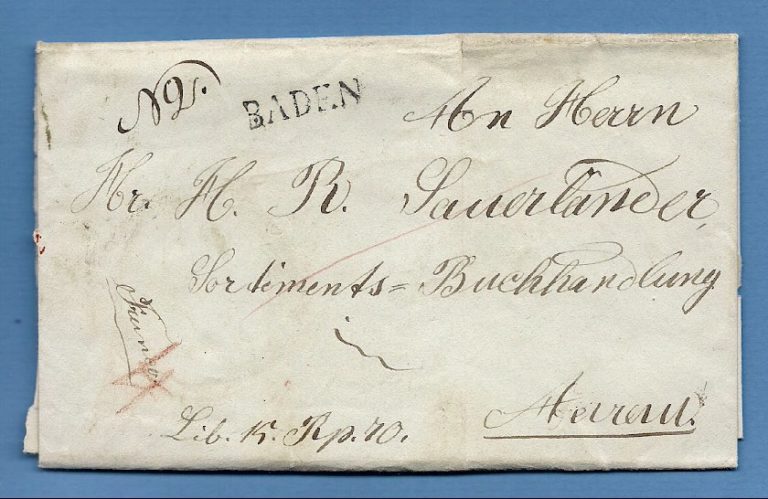 N2. BADEN An Herrn
Hr. H. R. Sauerländer,
Sortiments=Buchhandlung
in
Franco
Aarau.
Lib. K. Rp. 70.